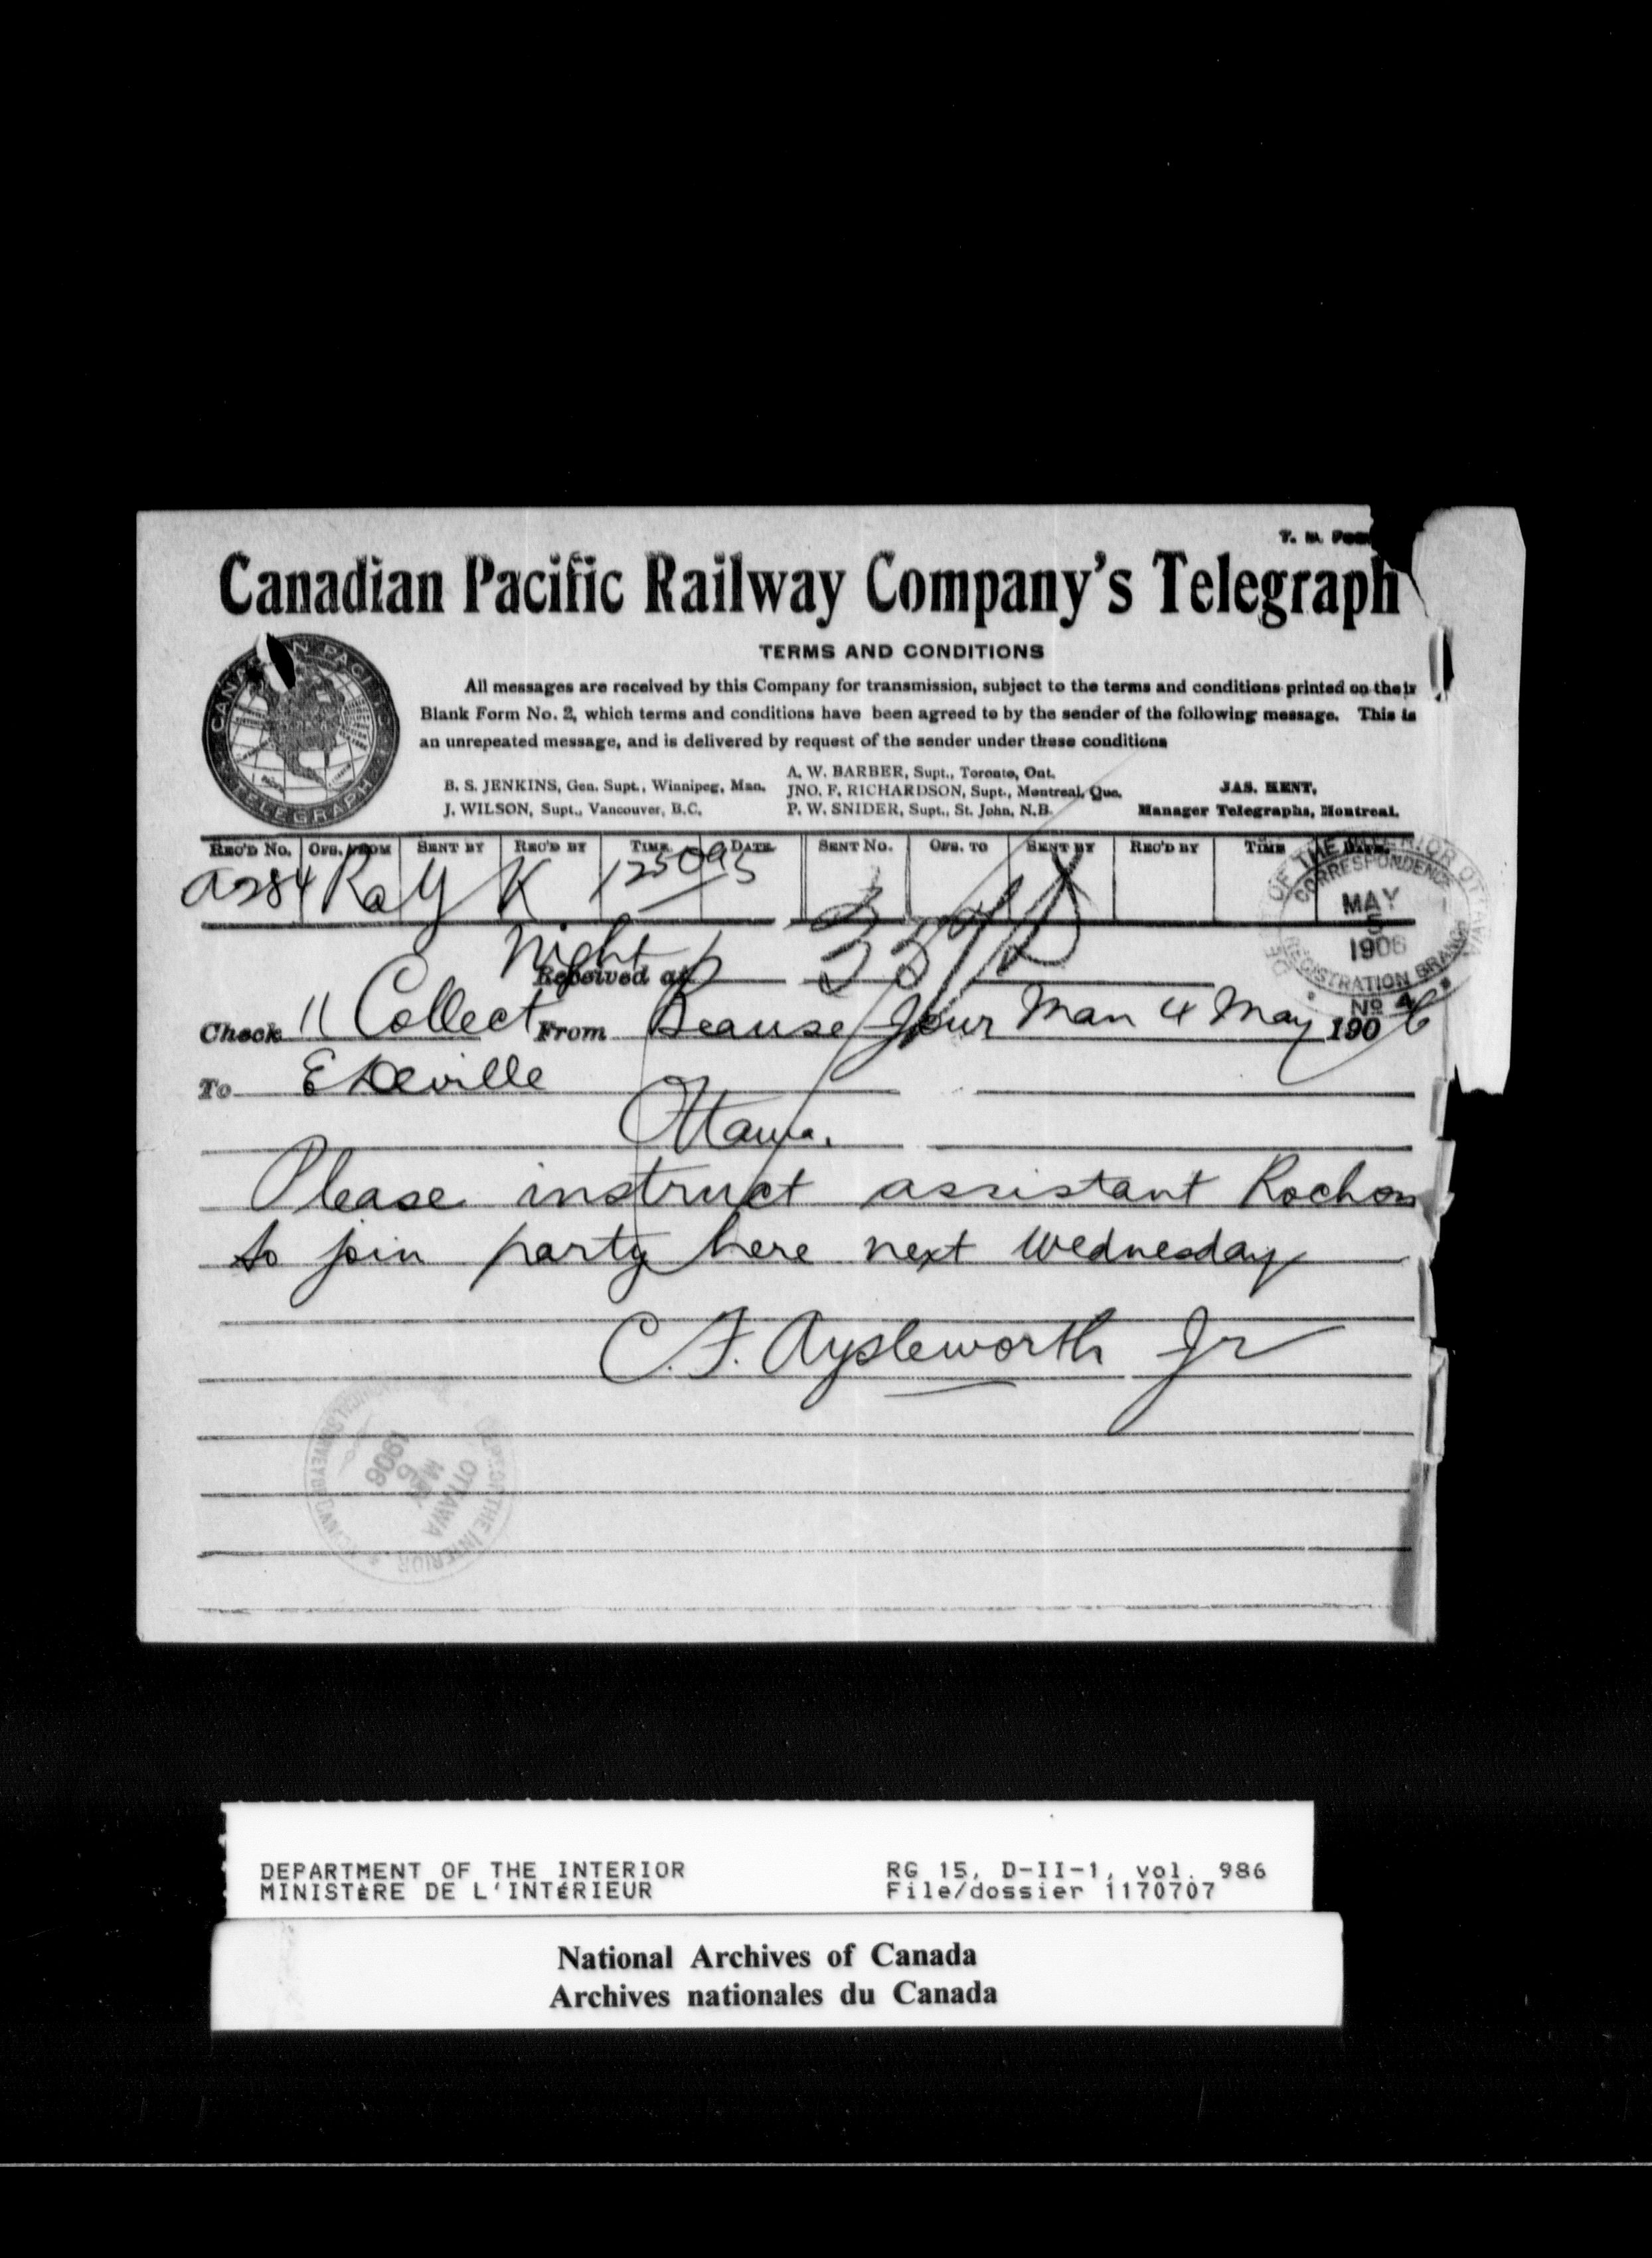 Canadian Pacific Railway Company's Telegraph
TERMS AND CONDITIONS
All messages are received by this Company for transmission, subject to the terms and conditions printed on their
Blank Form No. 2, which terms and conditions have been agreed to by the sender of the following message. This is
an unrepeated message, and is delivered by request of the sender under these conditions
B. S. JENKINS, Gen. Supt., Winnipeg, Man.
J. WILSON, Supt., Vancouver, B.C.
A. W. BARBER, Supt., Toronto, Ont.
JNO. F. RICHARDSON, Supt., Montreal, Que.
P. W. SNIDER, Supt., St. John, N.B.
JAS. KENT,
Manager Telegraphs, Montreal.
CANADIAN PACIFIC
TELEGRAPH
REC'D No. OFS. FROM SENT BY REC'D BY TIME DATE SENT No. OFS. TO SENT BY REC'D BY TIME DATE
a284 Ra y K 1250a 5
CORRESPONDENCE
MAY
5
1906
REGISTRATION BRANCH
No 4
Night
Received at
Check 11 Collect From Beause Jour Man 4 May 1906
To E Deville
Ottawa.
Please instruct assistant Rochon
to join party here next Wednesday
C. F. Aysleworth Jr
DEPT. OF THE INTERIOR
OTTAWA
MAY
5
1906
DEPARTMENT OF THE INTERIOR
MINISTÈRE DE L'INTÉRIEUR
RG 15, D-II-1, vol. 986
File/dossier 1170707
National Archives of Canada
Archives nationales du Canada